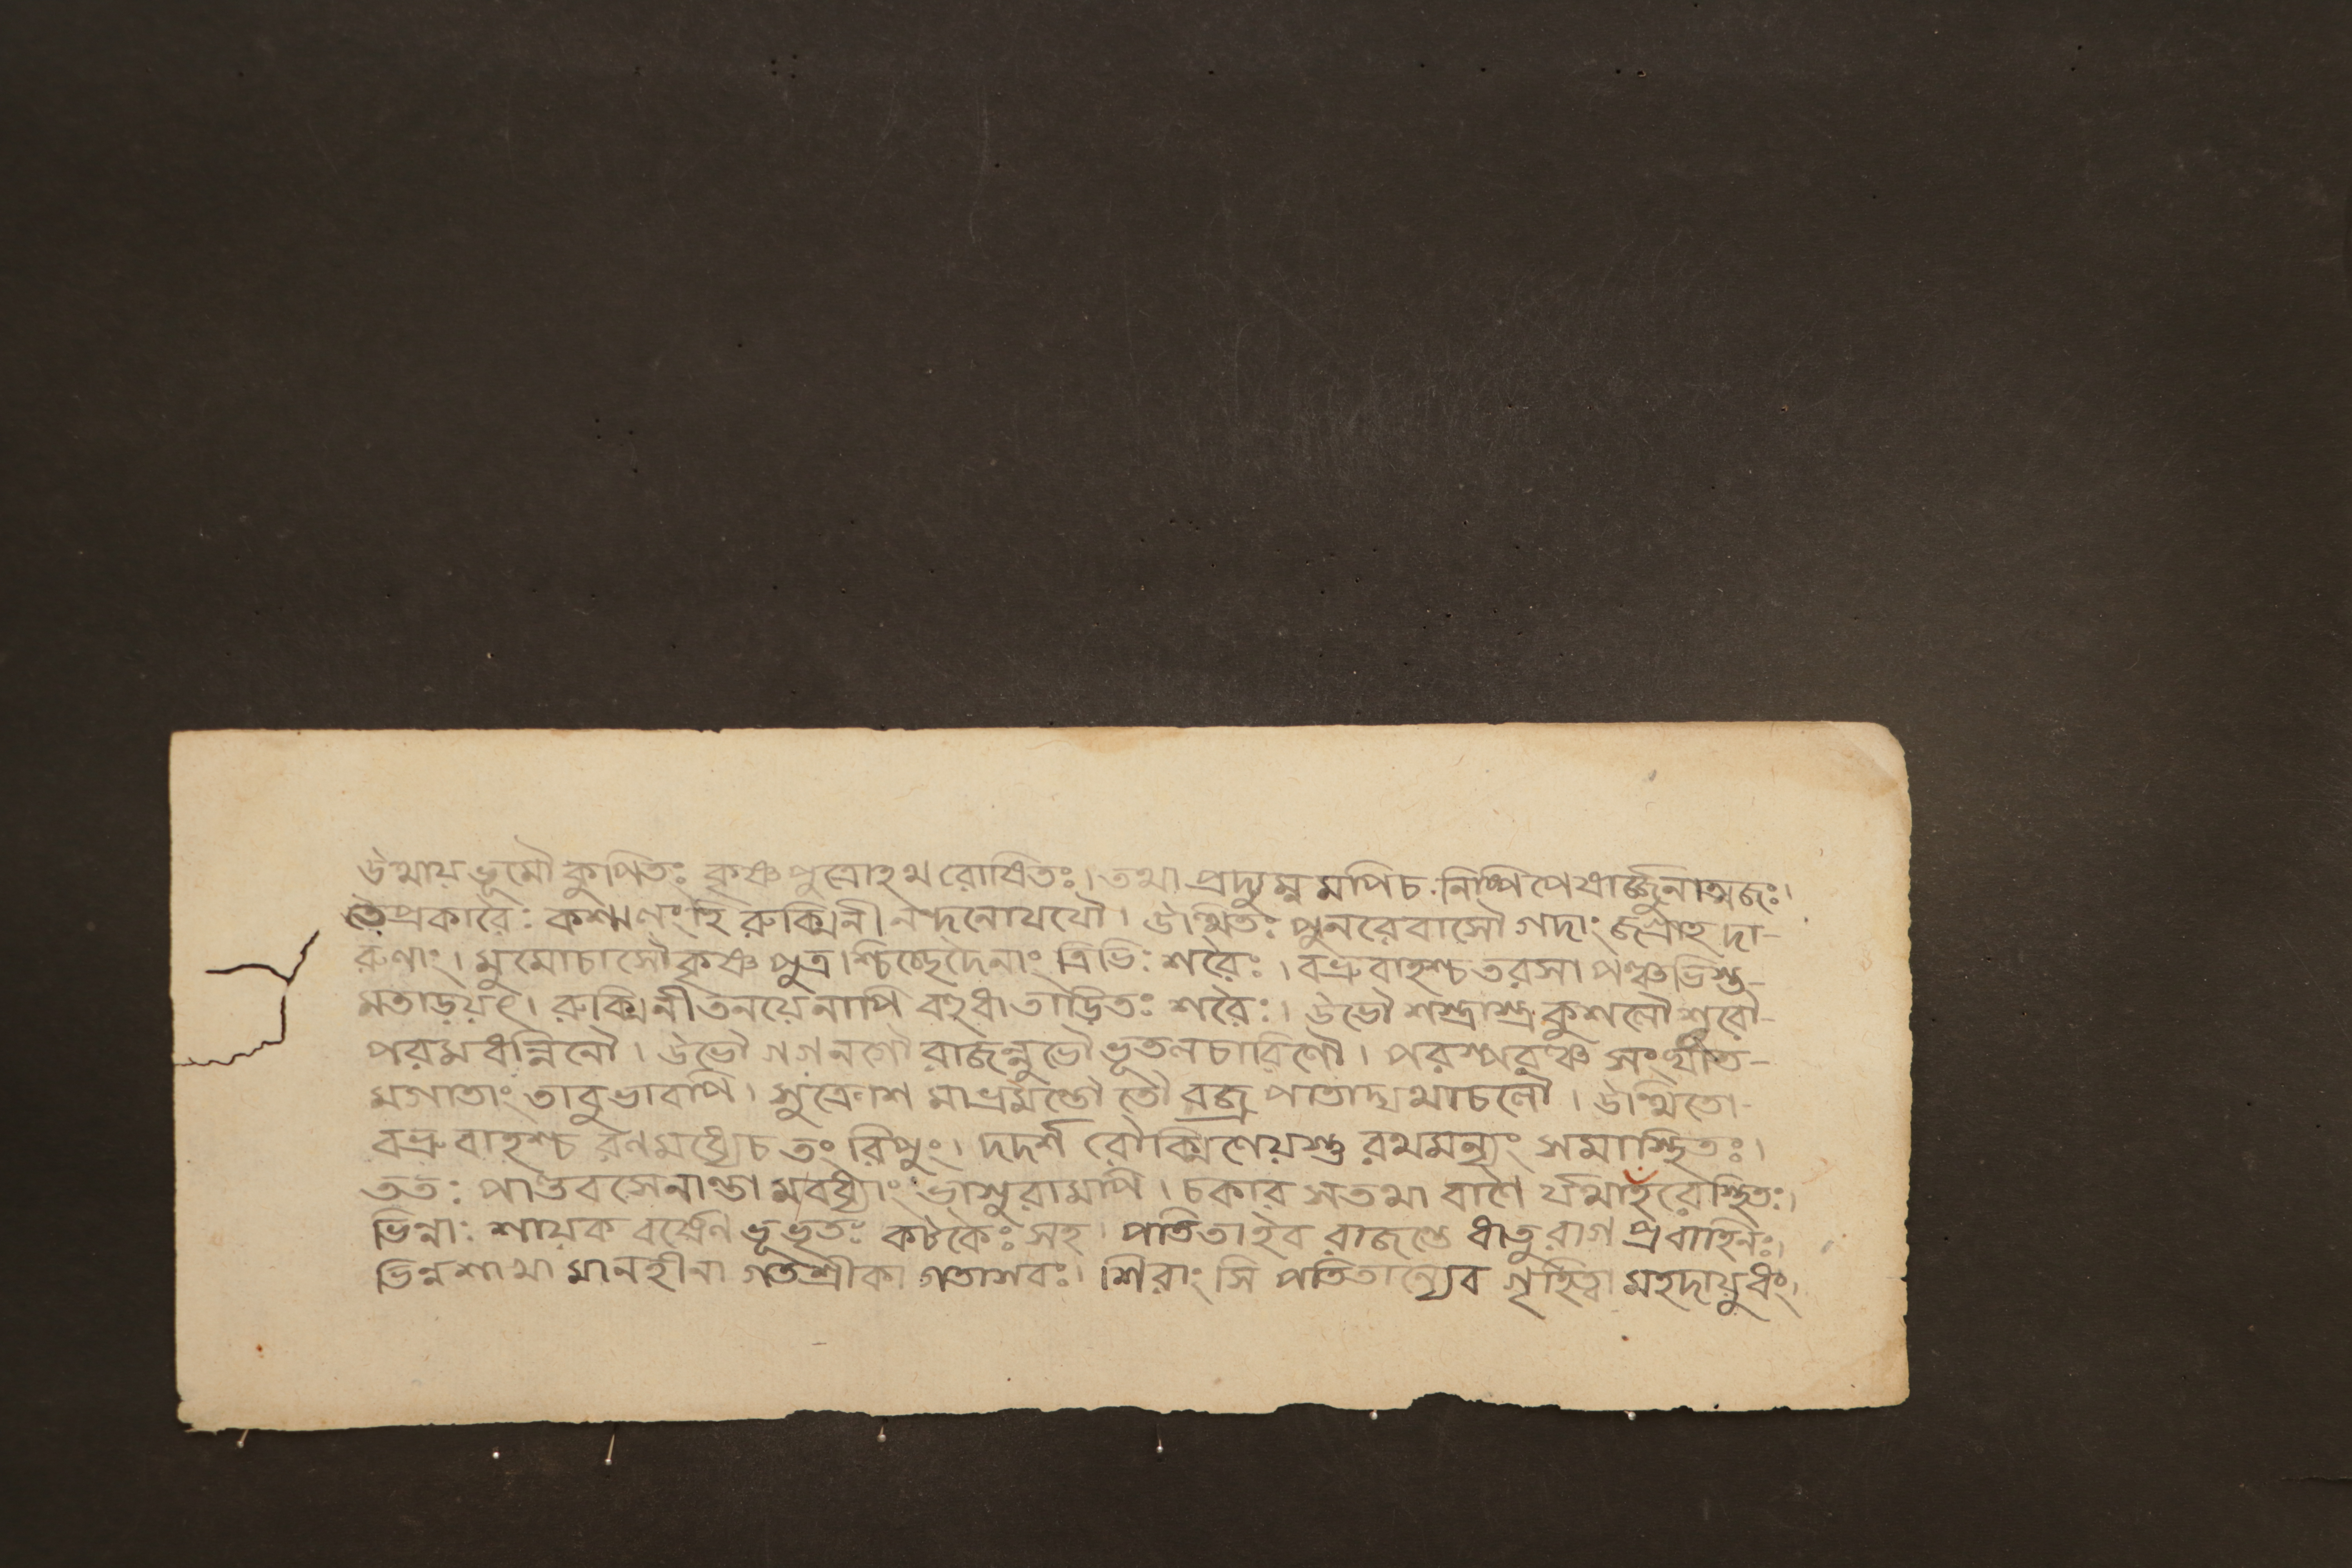 উত্থায় ভূমৌ কুপিতঃ কৃষ্ণপুত্রোহথ রোষিতঃ। তথা প্রদ্যুম্নমপি চ নিষ্পিপেষার্জ্জুনাত্মজঃ।
তৈপ্রকারৈঃ কশ্মলং হি রুক্মিনীনন্দনোযযৌ। উত্থিতঃ পুনরেবাসৌ গদাং জগ্রাহ দা-
রুণাং। মুমোচাসৌ কৃষ্ণপুত্রশ্চিচ্ছেদৈনাং ত্রিভিঃ শরৈঃ। বভ্রুবাহশ্চ তরসা পঞ্চভিস্তু-
মতাড়য়ৎ। রুক্মিনীতনয়েনাপি বহুধা তাড়িতঃ শরৈঃ। উভৌ শস্ত্রাস্ত্রকুশলৌ শূরৌ-
পরমধন্বিনৌ। উভৌ গগনগৌ রাজন্নুভৌ ভূতলচারিণৌ। পরস্পরঞ্চ সংঘাত-
মগাতাং তাবুভাবপি। সুক্রোশমাভ্রমন্তৌ তৌ বজ্রপাতাদ্যথাচলৌ। উত্থিতো-
বভ্রুবাহশ্চ রণমধ্যেচ তং রিপুং। দদর্শ রৌক্মিণেয়স্তু রথমন্যং সমাস্থিতঃ।
ততঃ পাণ্ডবসেনান্তামবধ্যাং ভাসুরামপি। চকার সতথা বাণৈ র্যথাহরেস্থিতঃ।
ভিন্নাঃ শায়কবর্ষেণ ভূভৃতঃ কটকৈঃ সহ। পতিতাইব রাজন্তে ধাতুরাগপ্রবাহিনঃ।
ভিন্নশাখা মানহীনা গতশ্রীকা গতাসবঃ। শিরাংসি পতিতান্যেব গৃহিত্বা মহদায়ুধং।